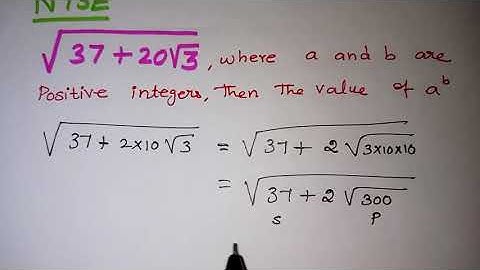 NTSE
√37 + 20√3 , where a and b are
Positive integers, Then The value of a^b
√37 + 2×10√3 = √37 + 2√3×10×10
= √37 + 2√300
S P